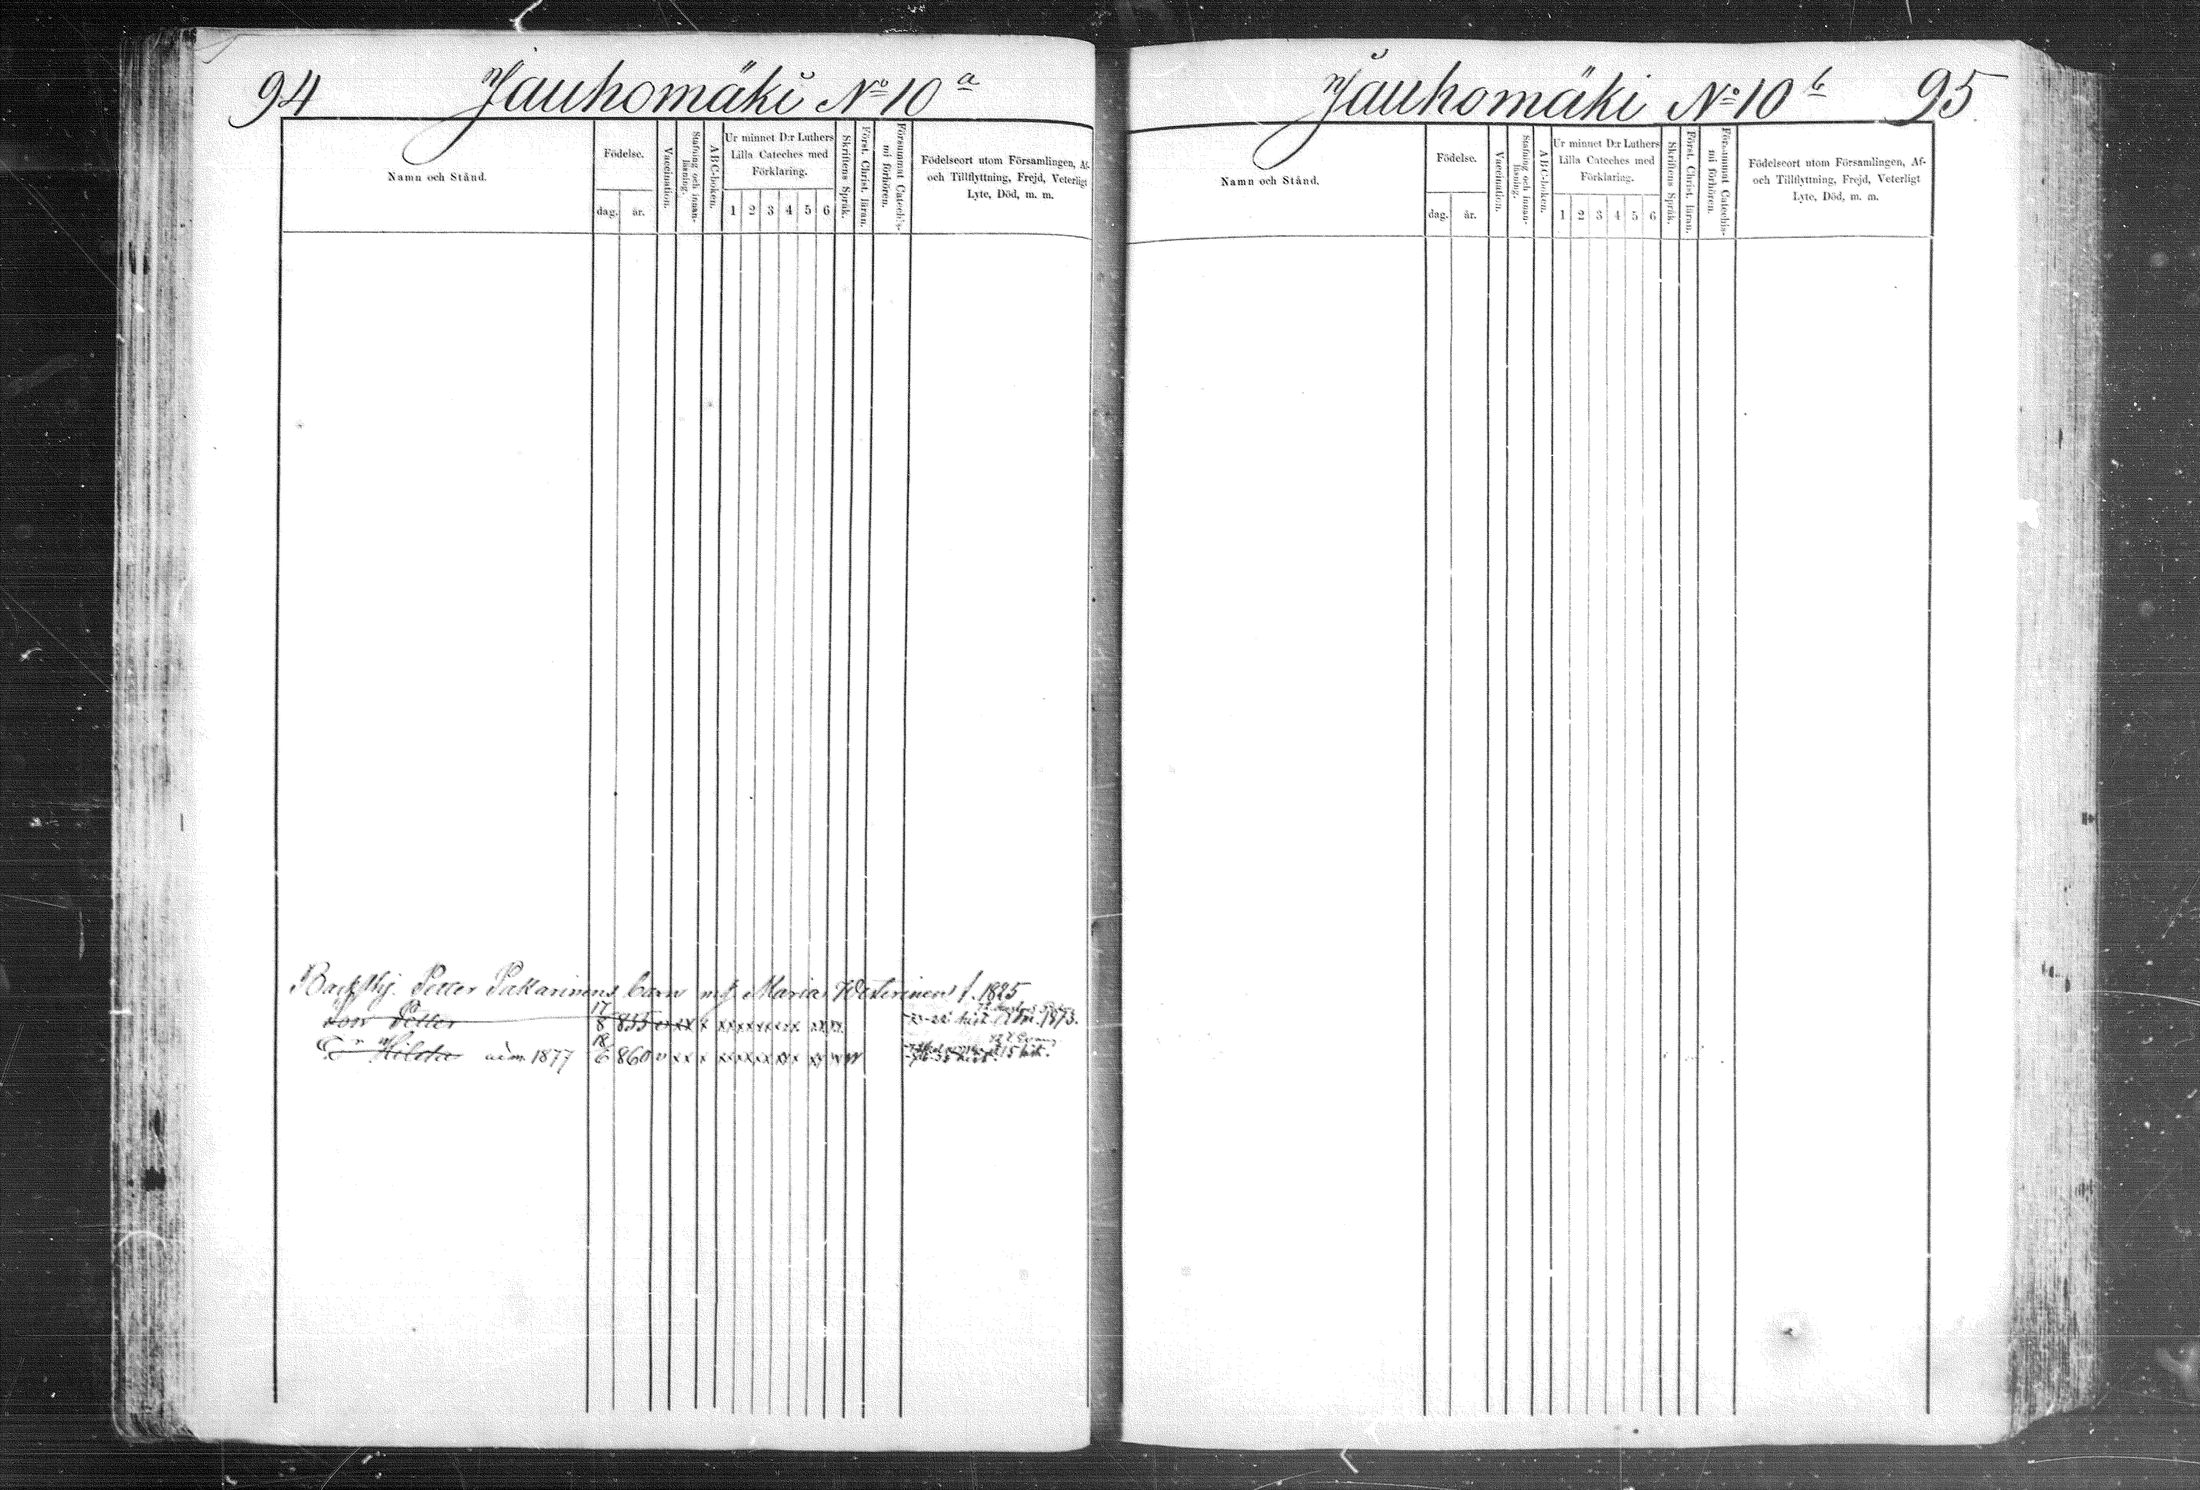 94 Jauhomäki No 10 a
Namn och Stånd.
Födelse.
dag.
år.
Vaccination.
Stafning och innan-
läsning.
ABC-boken.
Ur minnet D:r Luthers
Lilla Cateches med
Förklaring.
1 2 3 4 5 6
Skriftens Språk.
Först. Christ. läran.
Försummat Catechis-
mi förhören.
Födelseort utom Församlingen, Af-
och Tillflyttning, Frejd, Veterligt
Lyte, Död, m. m.
Petter Pakarinens barn m. Maria Westerinen f. 1825
son Petter 17 8 855
Hilda adm. 1877 18 6 860
Jauhomäki No 10 b 95
Namn och Stånd.
Födelse.
dag.
år.
Vaccination.
Stafning och innan-
läsning.
ABC-boken.
Ur minnet D:r Luthers
Lilla Cateches med
Förklaring.
1 2 3 4 5 6
Skriftens Språk.
Först. Christ. läran.
Försummat Catechis-
mi förhören.
Födelseort utom Församlingen, Af-
och Tillflyttning, Frejd, Veterligt
Lyte, Död, m. m.